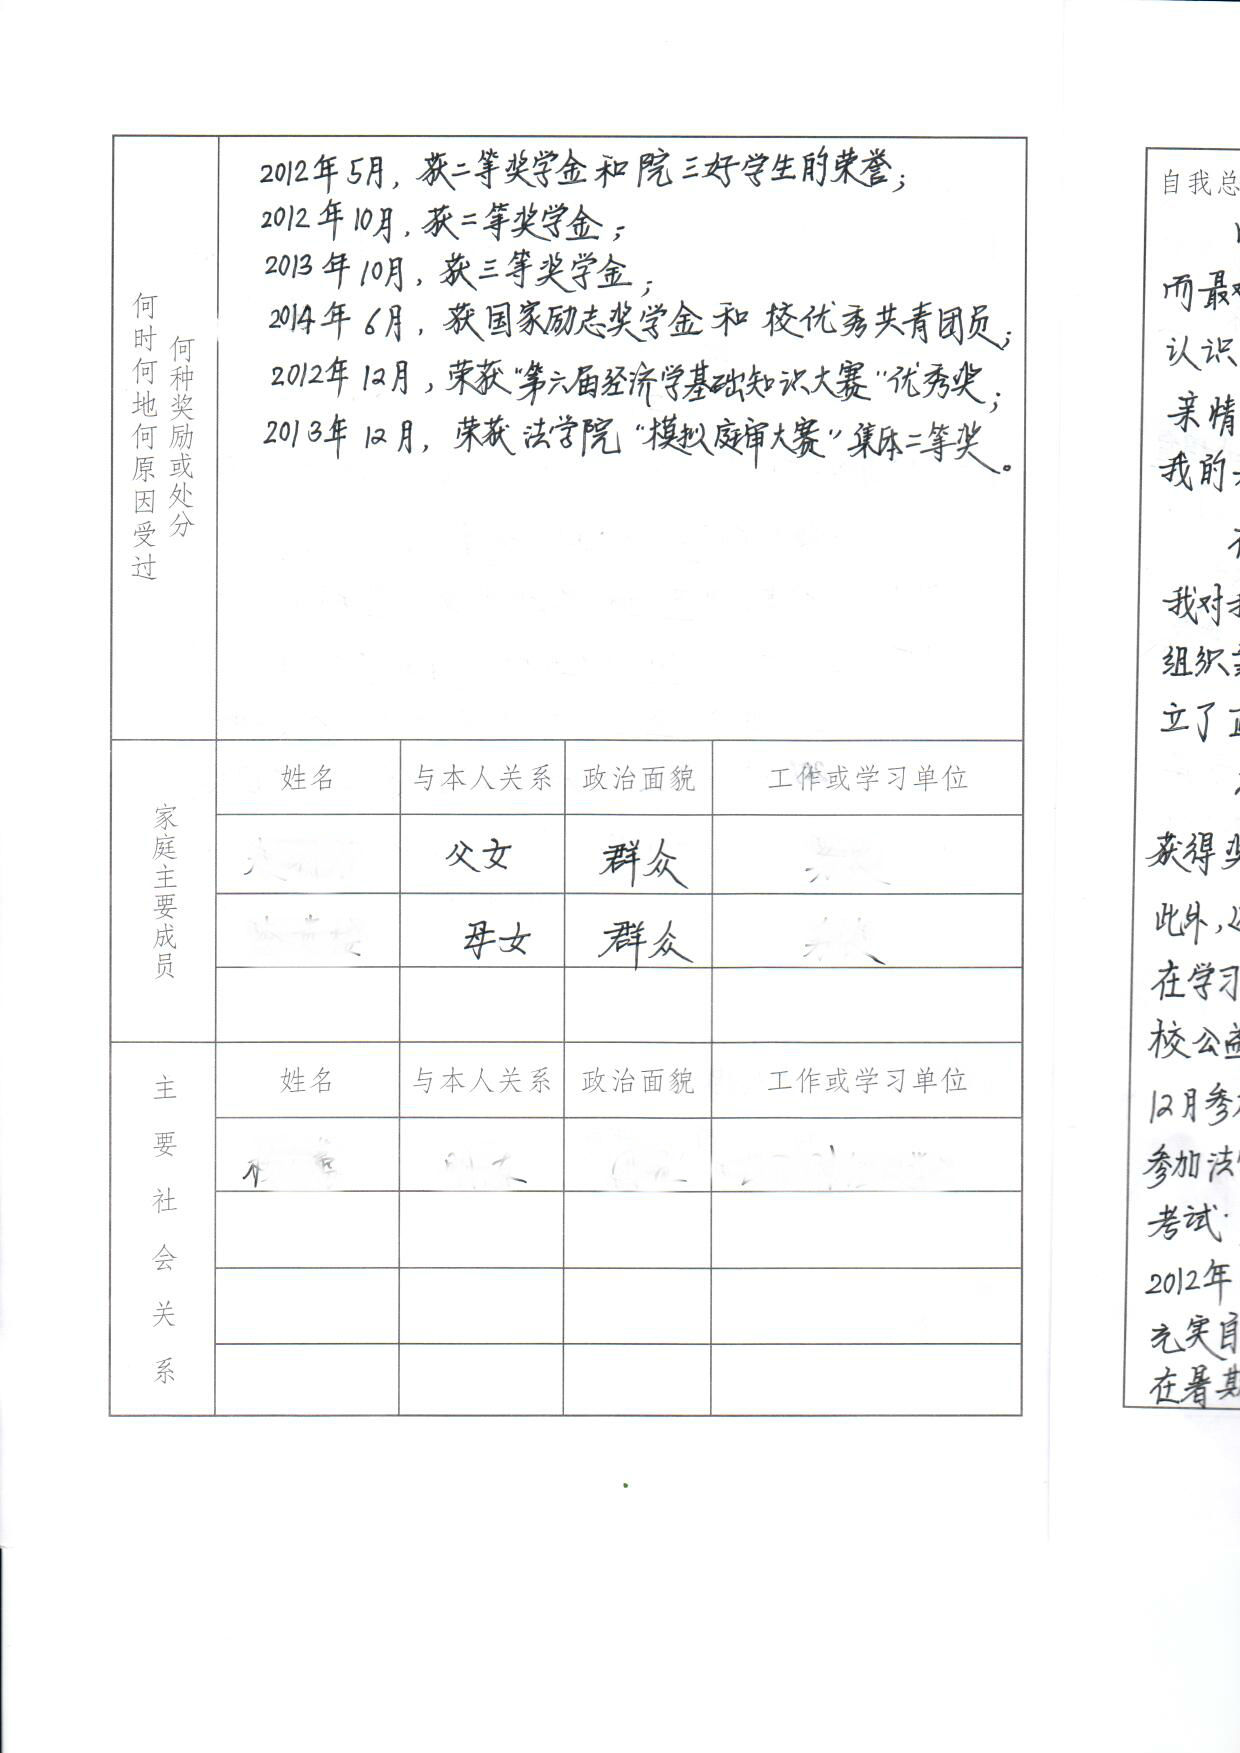 何时何地何原因受过
何种奖励或处分
2012年5月，获二等奖学金和院三好学生的荣誉；
2012年10月，获二等奖学金；
2013年10月，获三等奖学金；
2014年6月，获国家励志奖学金和校优秀共青团员；
2012年12月，荣获“第六届经济学基础知识大赛”优秀奖；
2013年12月，荣获法学院“模拟庭审大赛”集体二等奖。
家庭主要成员
姓名 与本人关系 政治面貌 工作或学习单位
父女 群众
母女 群众
主要社会关系
姓名 与本人关系 政治面貌 工作或学习单位
自我总
而最
认识
亲情
我的
我对
组织
立了
获得奖
此外，
在学习
校公益
12月参
参加法
考试
2012年
充实自
在暑期